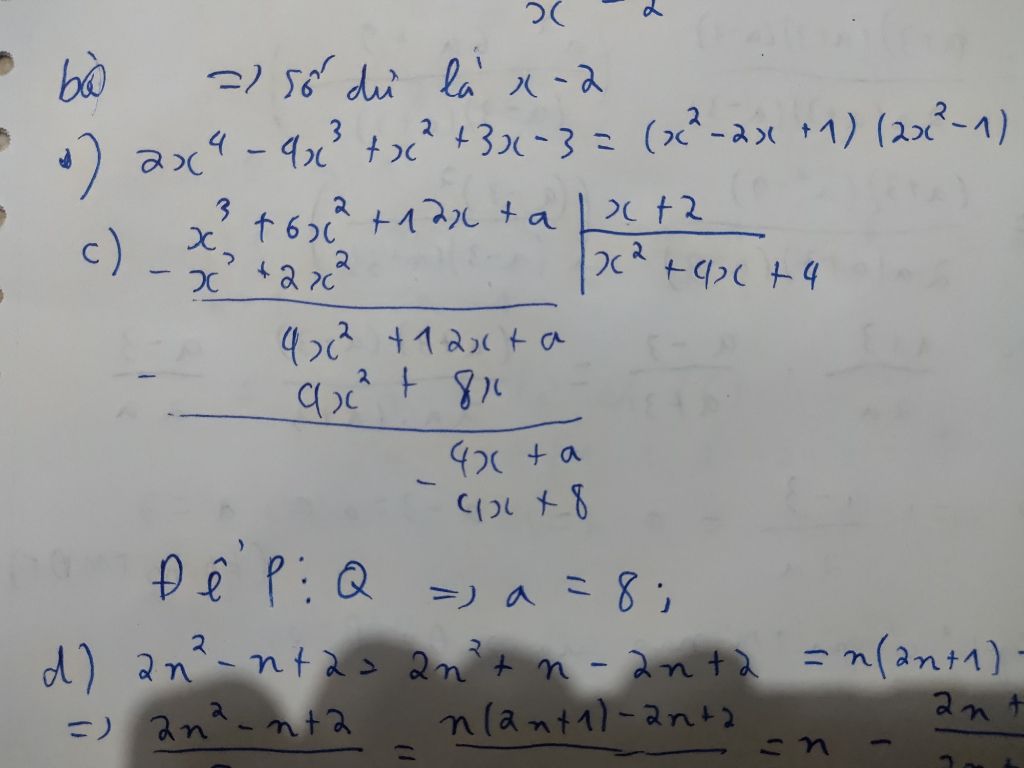 x - 2
bà => số dư là x - 2
b) 2x⁴ - 4x³ + x² + 3x - 3 = (x² - 2x + 1) (2x² - 1)
c) x³ + 6x² + 12x + a | x + 2
- x³ + 2x² | x² + 4x + 4
4x² + 12x + a
- 4x² + 8x
4x + a
- 4x + 8
Để P ⋮ Q => a = 8 ;
d) 2n² - n + 2 = 2n² + n - 2n + 2 = n(2n+1) -
=> 2n² - n + 2 = n(2n+1) - 2n + 2 = n - 2n +